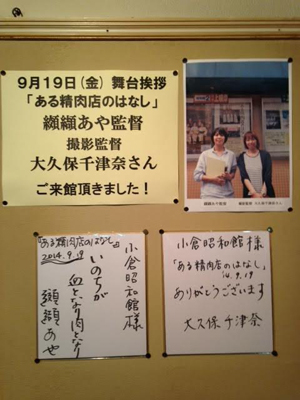 9月19日(金) 舞台挨拶
「ある精肉店のはなし」
纐纈あや監督
撮影監督
大久保千津奈さん
ご来館頂きました!
纐纈あや監督
撮影監督 大久保千津奈さん
小倉昭和館様
いのちが
血となり肉となり
纐纈あや
「ある精肉店のはなし」
2014.9.19
小倉昭和館様
「ある精肉店のはなし」
14.9.19
ありがとうございます
大久保千津奈